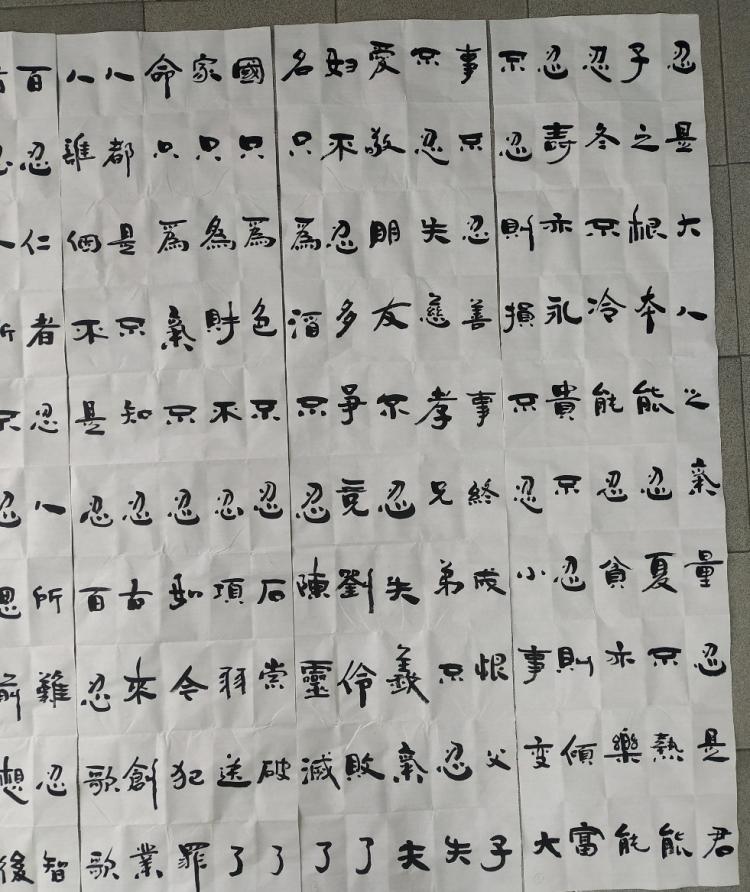 忍是大人之氣量忍是君
子之根本能忍夏不熱能
忍冬不冷能忍貧亦樂能
忍壽亦永貴不忍則傾富
不忍則損不忍小事变大
事不忍善事終成恨父子
不忍失慈孝兄弟不忍失
愛敬朋友不忍失義氣夫
婦不忍多爭競劉伶敗了
名只爲酒不忍陳靈滅了
國只爲色不忍石崇破了
家只爲財不忍項羽送了
命只爲氣不忍如今犯罪
人都是不知忍古來創業
人誰個不是忍百忍歌歌
百忍仁者忍人所難忍智
忍人所不忍思前想後